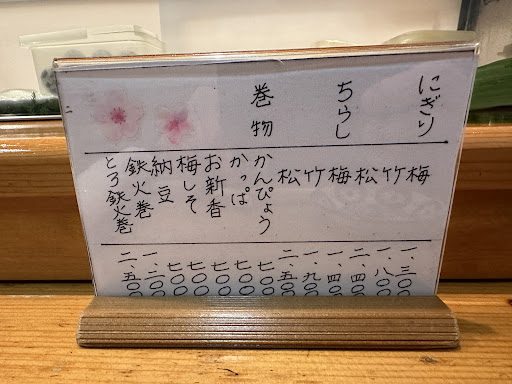 にぎり
梅 一、三〇〇
竹 一、八〇〇
松 二、四〇〇
ちらし
梅 一、四〇〇
竹 一、九〇〇
松 二、五〇〇
巻物
かんぴょう 七〇〇
かっぱ 七〇〇
お新香 七〇〇
梅しそ 七〇〇
納豆 七〇〇
鉄火巻 一、二〇〇
とろ鉄火巻 二、五〇〇